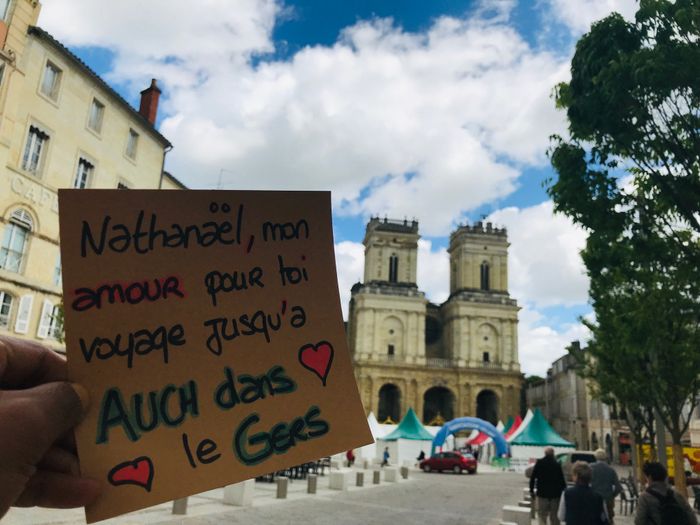 CAFÉ
Nathanaël, mon
amour pour toi
voyage jusqu'a
AUCH dans
le GERS